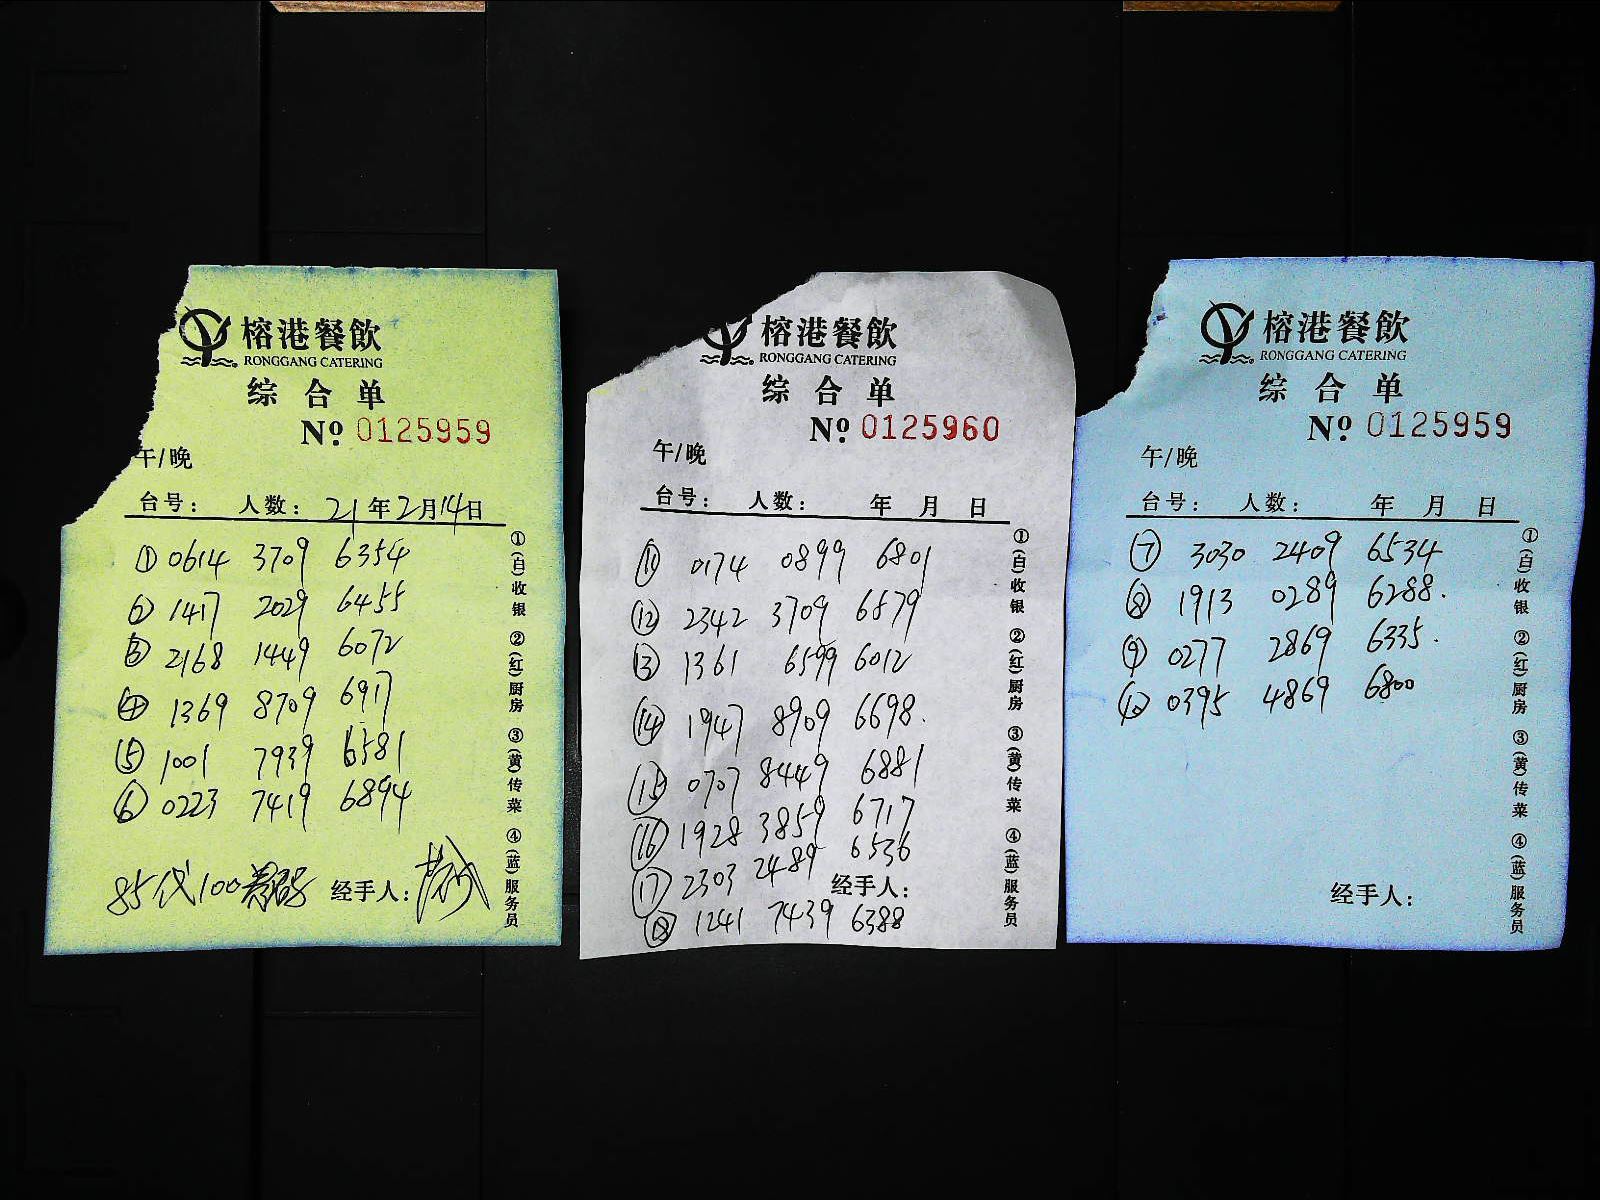 榕港餐飲
RONGGANG CATERING
综合单
Nº 0125959
午/晚
台号: 人数: 21年2月14日
① 0614 3709 6354
② 1417 2029 6455
③ 2168 1449 6072
④ 1369 8709 6917
⑤ 1001 7939 6581
⑥ 0223 7419 6894
85代100
经手人:
①(白)收银 ②(红)厨房 ③(黄)传菜 ④(蓝)服务员
榕港餐飲
RONGGANG CATERING
综合单
Nº 0125960
午/晚
台号: 人数: 年 月 日
⑪ 0174 0899 6801
⑫ 2342 3709 6879
⑬ 1361 6599 6012
⑭ 1947 8909 6698.
⑮ 0707 8449 6881
⑯ 1928 3859 6717
⑰ 2303 2489 6536
经手人:
⑱ 1241 7439 6388
①(白)收银 ②(红)厨房 ③(黄)传菜 ④(蓝)服务员
榕港餐飲
RONGGANG CATERING
综合单
Nº 0125959
午/晚
台号: 人数: 年 月 日
⑦ 3030 2409 6534
⑧ 1913 0289 6288.
⑨ 0277 2869 6335.
⑩ 0395 4869 6800
经手人:
①(白)收银 ②(红)厨房 ③(黄)传菜 ④(蓝)服务员